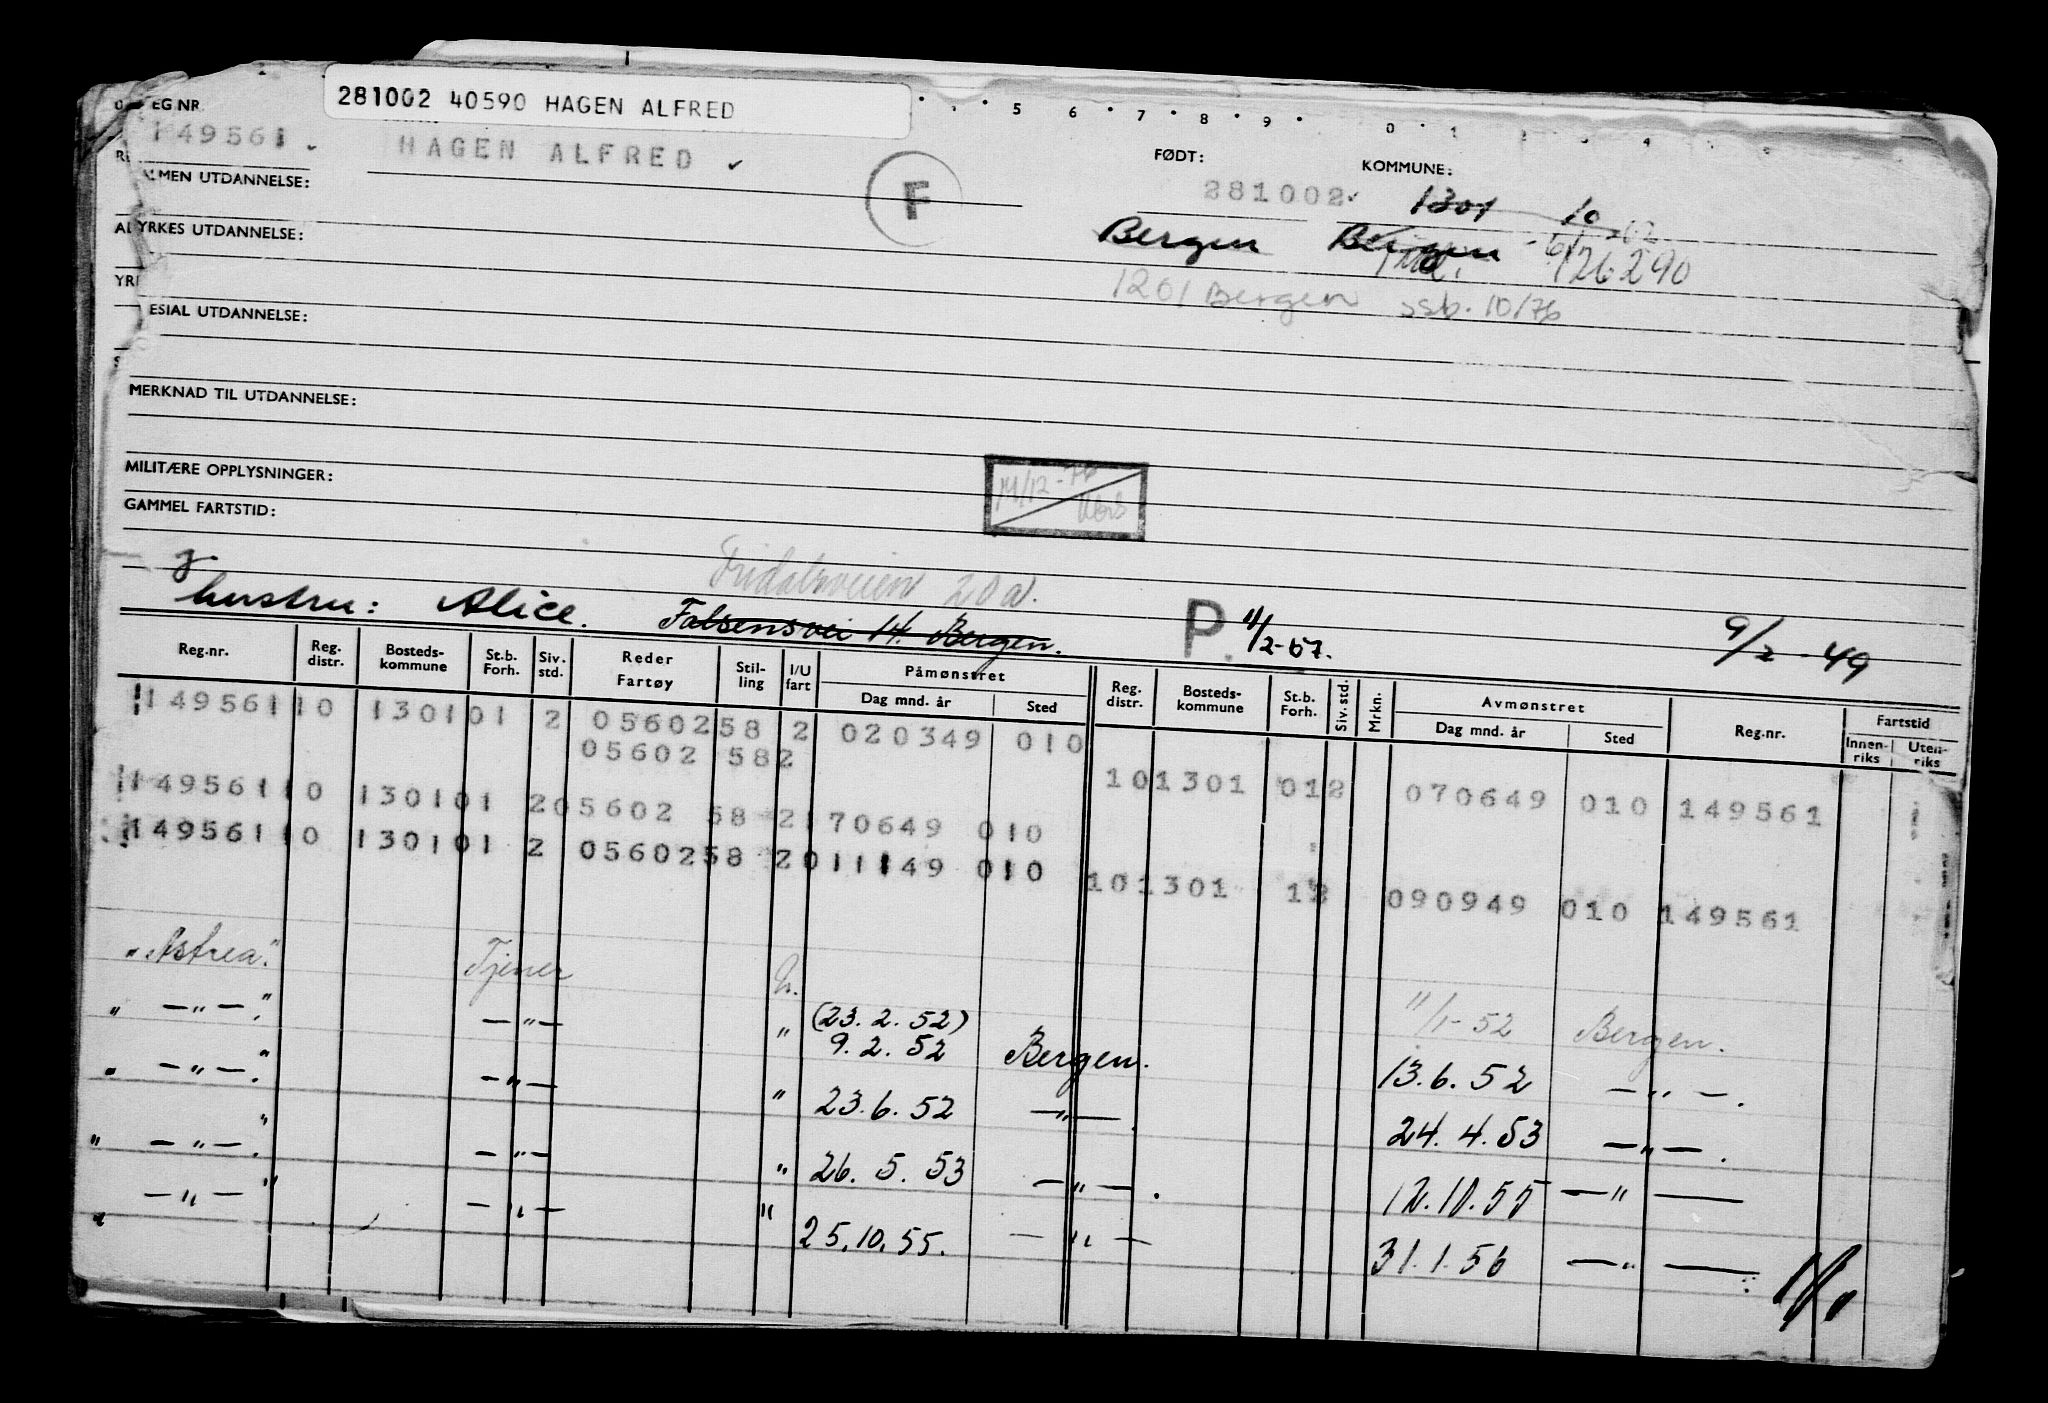 281002 40590 HAGEN ALFRED
5 6 7 8 9 0 1
EG.NR.
149561
HAGEN ALFRED
F
FØDT:
281002
KOMMUNE:
1301 10
LMEN UTDANNELSE:
Bergen Bergen
126290
YRKES UTDANNELSE:
1201 Bergen ssb. 10/76
ESIAL UTDANNELSE:
MERKNAD TIL UTDANNELSE:
MILITÆRE OPPLYSNINGER:
GAMMEL FARTSTID:
Fridalsveien 20a.
hustru: Alice. Falsensvei 14. Bergen. P. 11/2-57. 9/2-49
Reg.nr. Reg. distr. Bosteds-kommune St.b. Forh. Siv. std. Reder Fartøy Stil-ling I/U fart Påmønstret Dag mnd. år Sted Reg. distr. Bosteds-kommune St.b. Forh. Siv.std. Mrkn. Avmønstret Dag mnd. år Sted Reg.nr. Fartstid Innen-riks Uten-riks
149561 10 1301 01 2 05602 58 2 020349 010
05602 58 2
10 1301 01 2 070649 010 149561
149561 10 1301 01 2 05602 58 2 170649 010
149561 10 1301 01 2 05602 58 2 011149 010
10 1301 1 2 090949 010 149561
"Astrea". Tjener U. 11/1-52 Bergen.
" — " — ". — " — " (23.2.52)
9.2.52 Bergen. 13.6.52 — " — .
" — " — ". — " — " 23.6.52 — " — . 24.4.53 — " — .
" — " — ". — " — " 26.5.53 — " — . 12.10.55 — " —
" — " — " — " — " 25.10.55. — " — 31.1.56 — " —